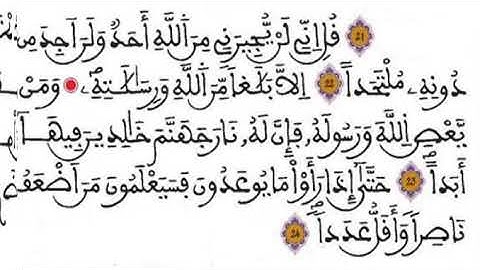 21 قُلْ إِنِّے لَنْ يُّجِيرَنِے مِنَ اَللَّهِ أَحَدٌ وَلَنَ اَجِدَ مِن
دُونِهِۦ مُلْتَحَداً 22 اِلَّا بَلَٰغاً مِّنَ اَللَّهِ وَرِسَٰلَٰتِهِۦۖ وَمَنْ
يَّعْصِ اِللَّهَ وَرَسُولَهُۥ فَإِنَّ لَهُۥ نَارَ جَهَنَّمَ خَٰلِدِينَ فِيهَآ
أَبَداًۖ 23 حَتَّىٰٓ إِذَا رَأَوْاْ مَا يُوعَدُونَ فَسَيَعْلَمُونَ مَنَ اَضْعَفُ
نَاصِراً وَأَقَلُّ عَدَداًۖ 24